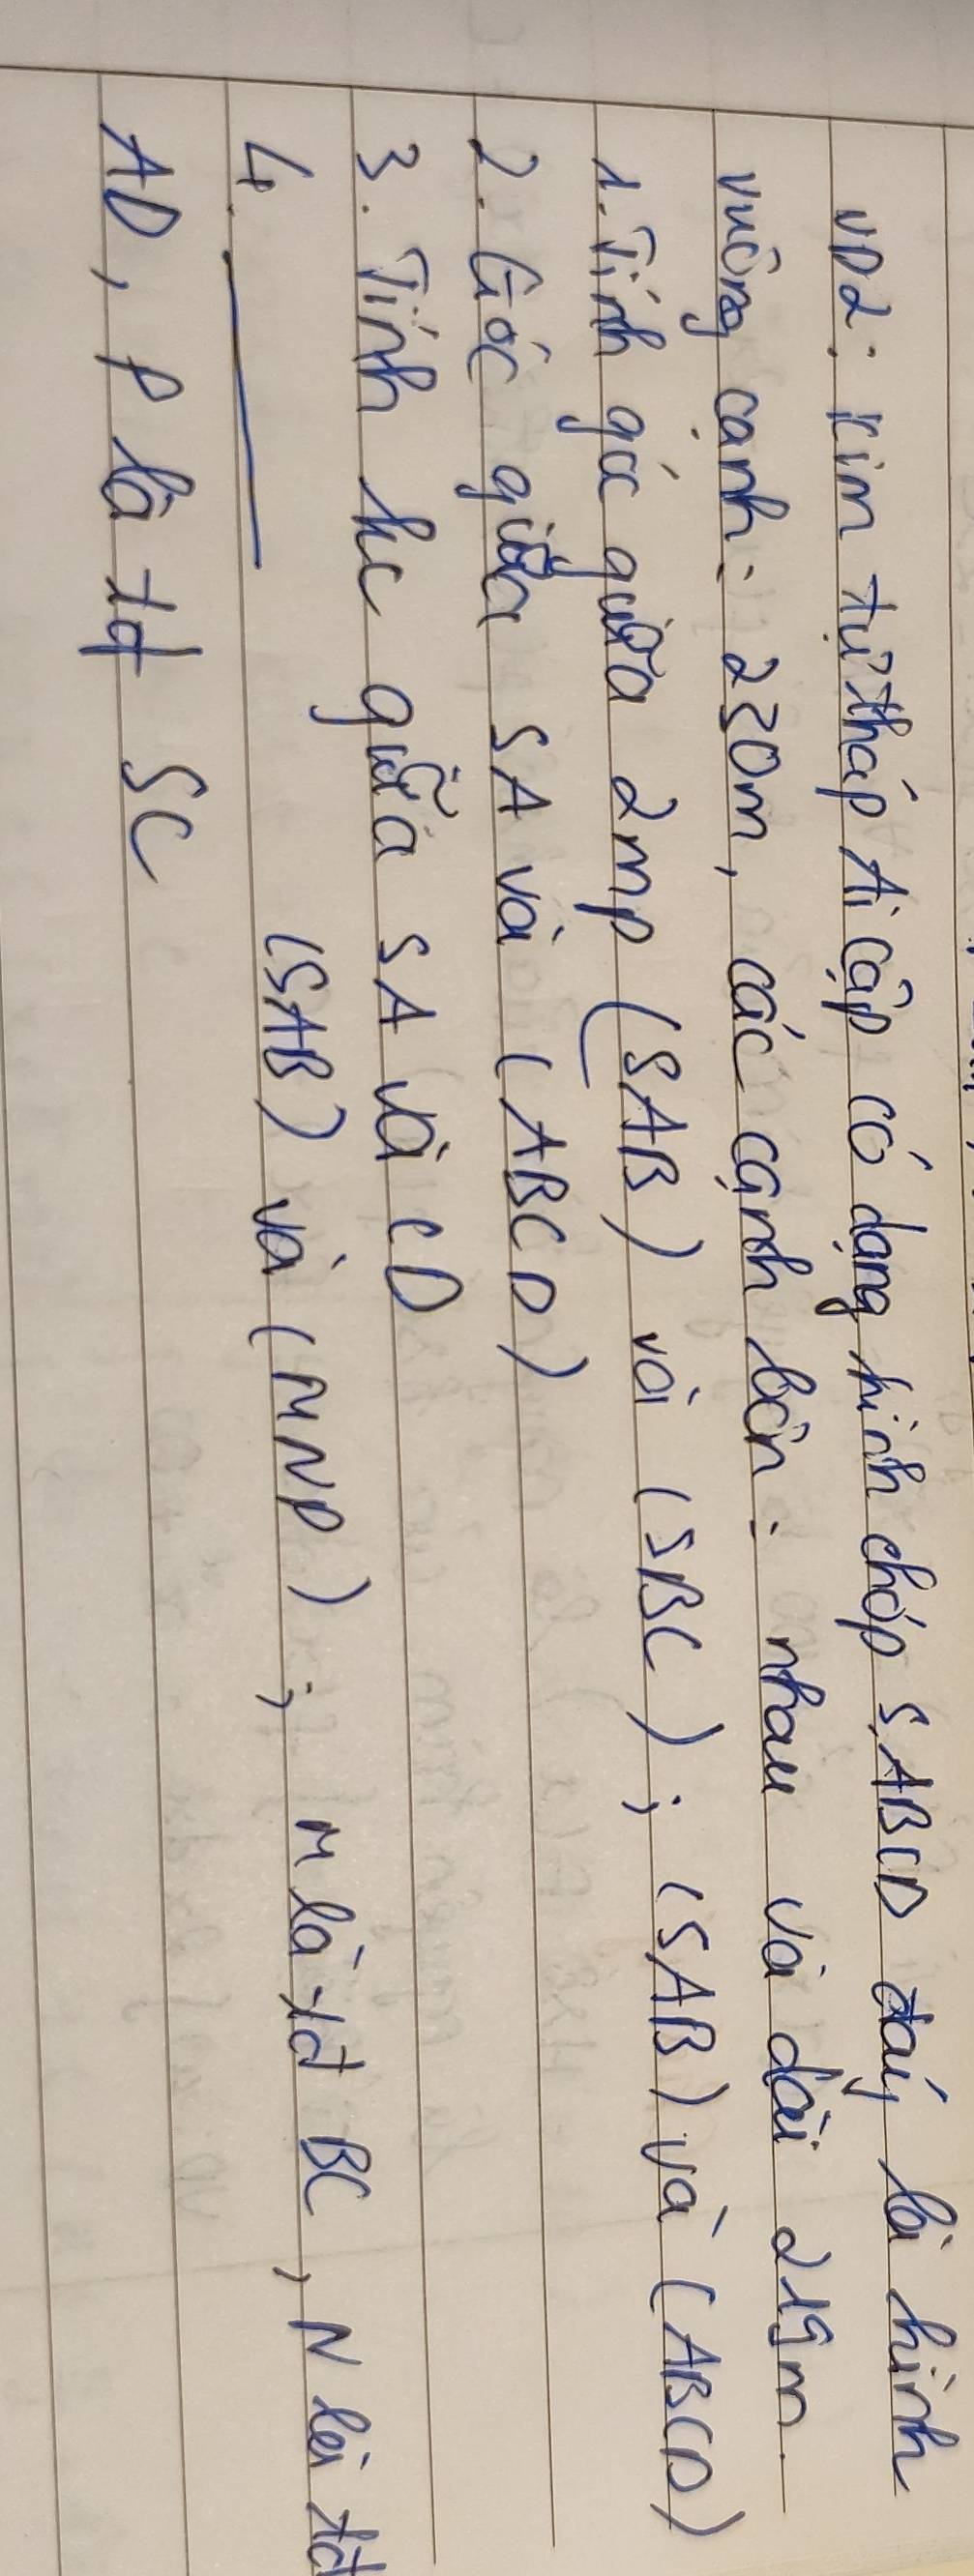 VD2: Kim tự tháp Ai cập có dạng hình chóp S.ABCD đáy là hình
vuông cạnh: 230m, các cạnh bên = nhau và dài 219m.
1. Tính góc giữa 2mp (SAB) và (SBC); (SAB) và (ABCD)
2. Góc giữa SA và (ABCD)
3. Tính kc giữa SA và CD
4. (SAB) và (MNP); M là tđ BC, N là tđ
AD, P là tđ SC